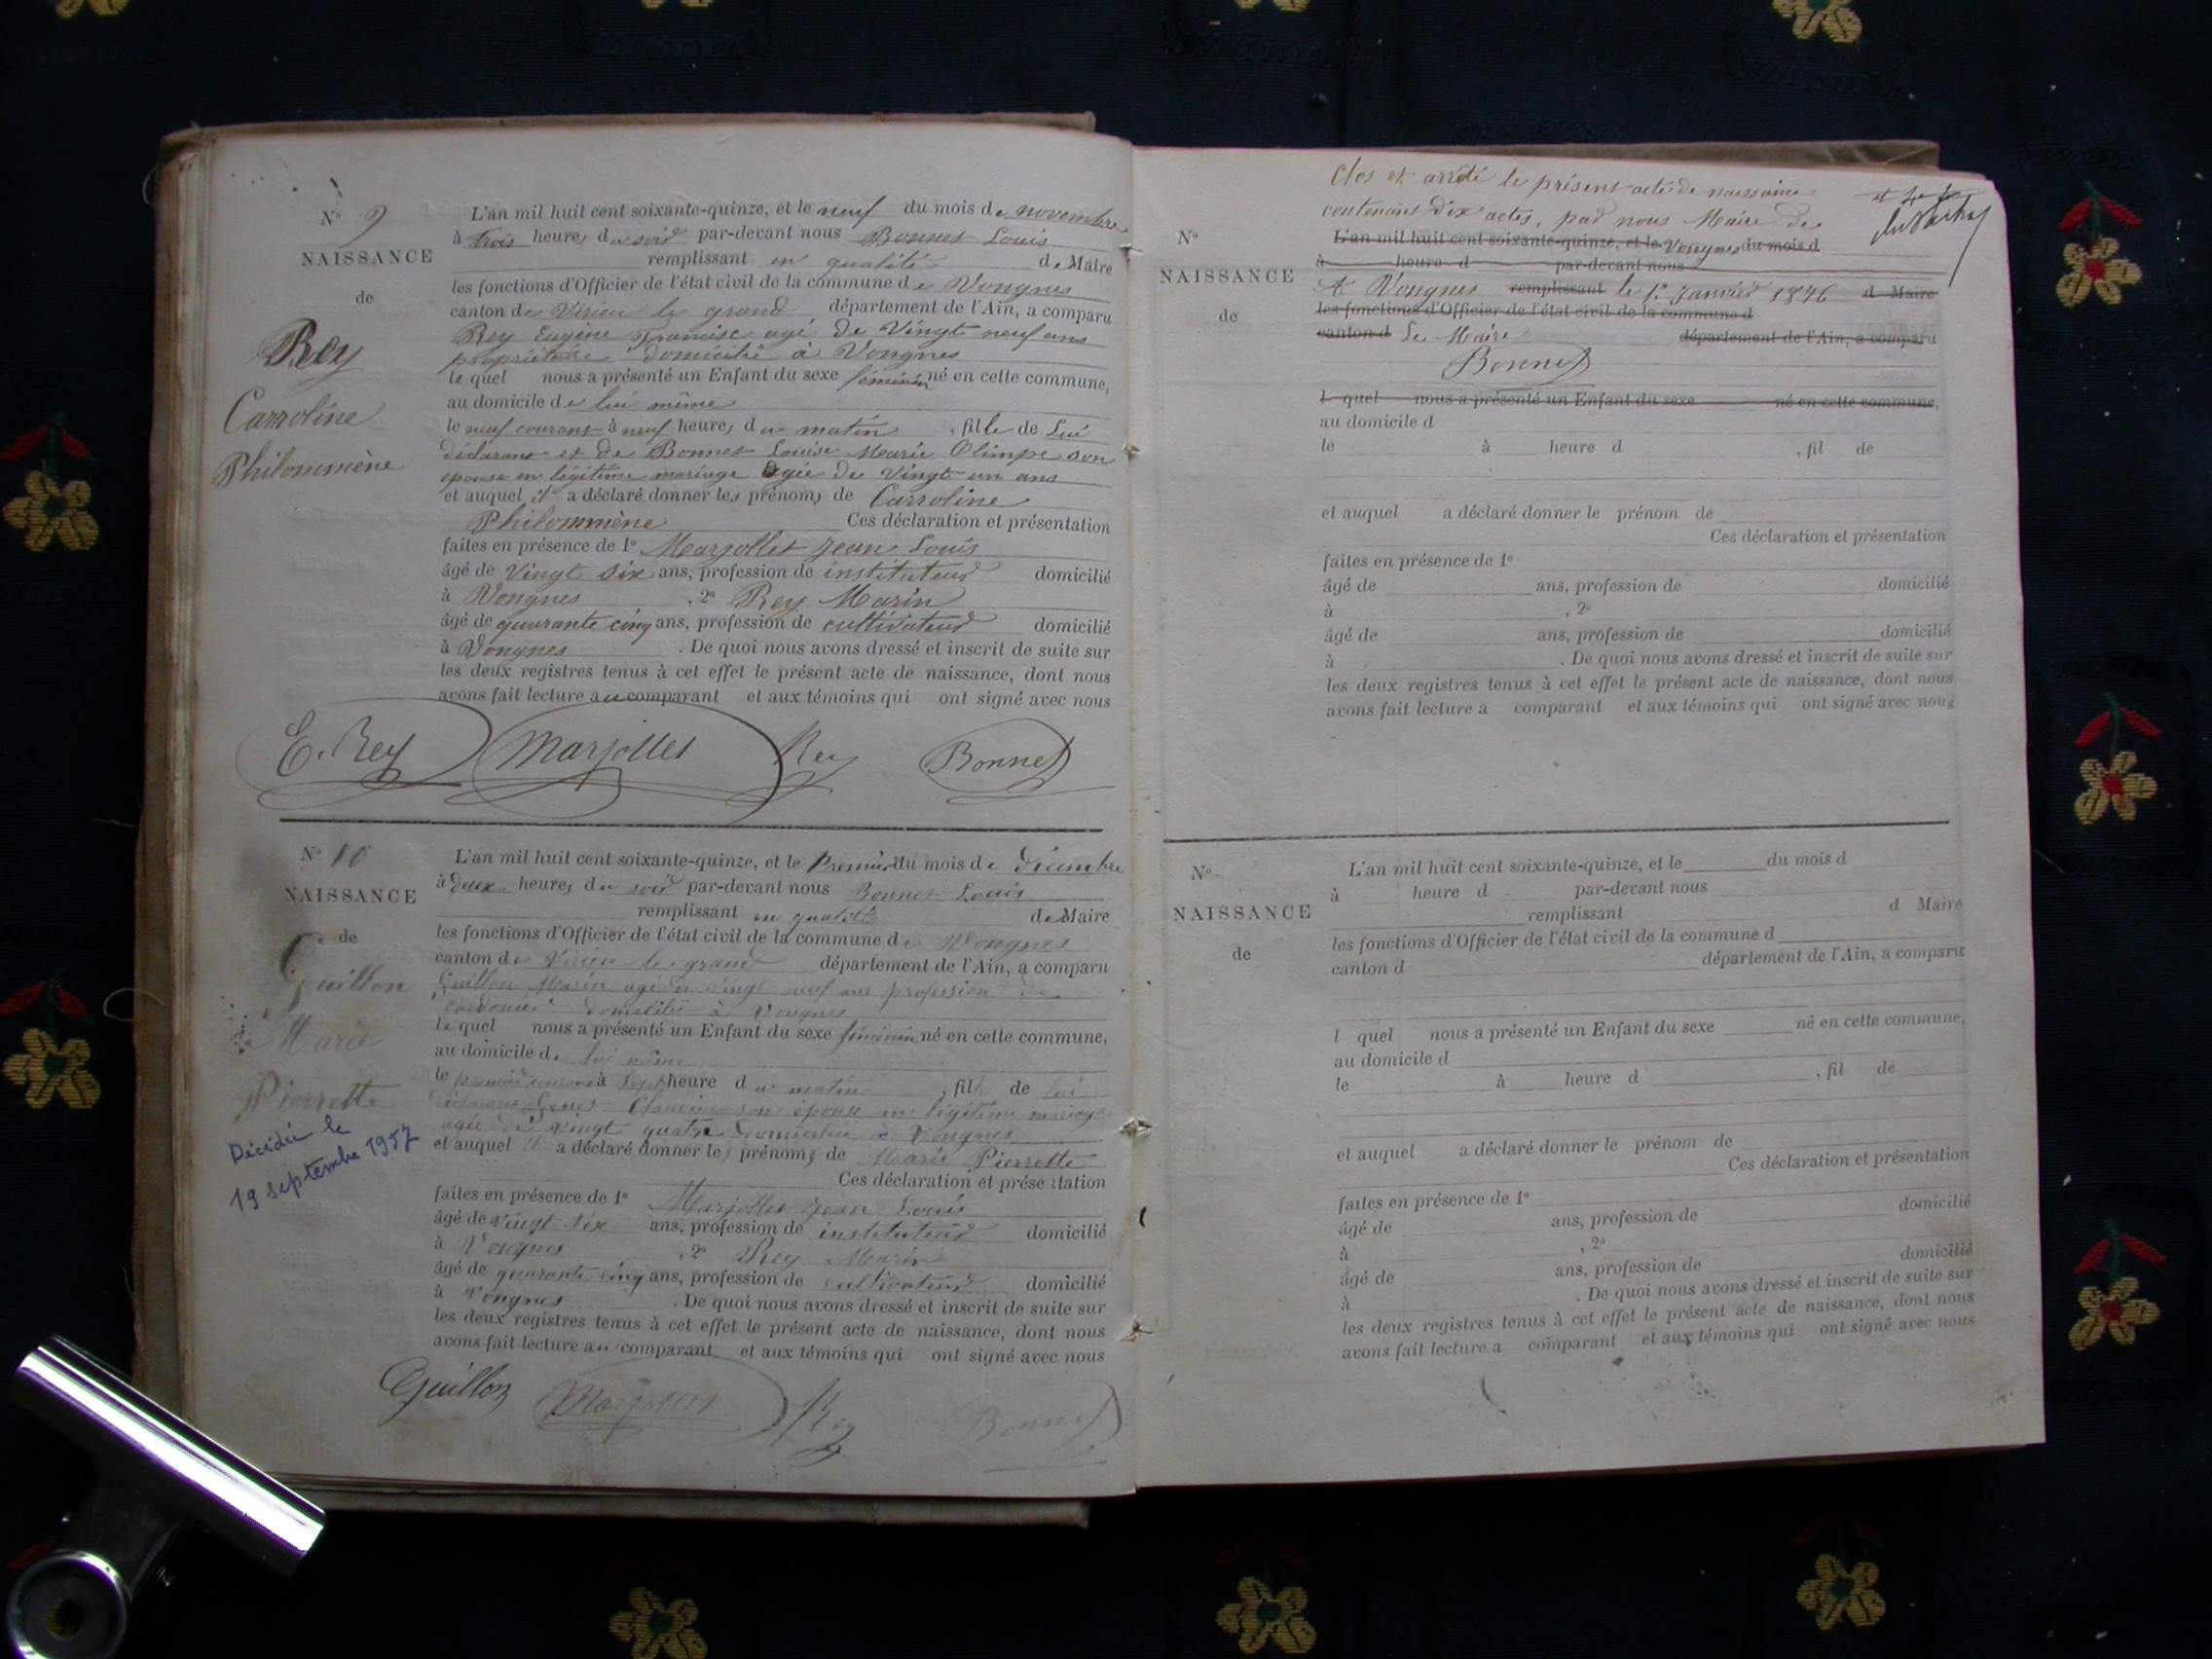 N° 9
NAISSANCE
de
Rey
Carroline
Philommène
L'an mil huit cent soixante-quinze, et le neuf du mois de novembre
à trois heures du soir par-devant nous Bonnet Louis
remplissant en qualité de Maire
les fonctions d'Officier de l'état civil de la commune de Vongnes
canton de Virieu le grand département de l'Ain, a comparu
Rey Eugène Francisc agé de Vingt neuf ans
propriétaire domicilié à Vongnes
le quel nous a présenté un Enfant du sexe féminin né en cette commune,
au domicile de lui même
le neuf courant à neuf heures du matin , fille de Lui
déclarant et de Bonnet Louise Marie Olimpe son
épouse en légitime mariage agée de Vingt un ans
et auquel il a déclaré donner les prénoms de Carroline
Philommène Ces déclaration et présentation
faites en présence de 1° Marjollet Jean Louis
âgé de Vingt six ans, profession de instituteur domicilié
à Vongnes , 2° Rey Marin
âgé de quarante cinq ans, profession de cultivateur domicilié
à Vongnes . De quoi nous avons dressé et inscrit de suite sur
les deux registres tenus à cet effet le présent acte de naissance, dont nous
avons fait lecture au comparant et aux témoins qui ont signé avec nous
E. Rey Marjollet Rey Bonnet
N° 10
NAISSANCE
de
Guillon
Marie
Pierrette
Décédée le
19 septembre 1957
L'an mil huit cent soixante-quinze, et le Premier du mois de Décembre
à deux heures du soir par-devant nous Bonnet Louis
remplissant en qualité de Maire
les fonctions d'Officier de l'état civil de la commune de Vongnes
canton de Virieu le grand département de l'Ain, a comparu
Guillon Marin agé de vingt neuf ans profession de
cordonier domicilié à Vongnes
le quel nous a présenté un Enfant du sexe féminin né en cette commune,
au domicile de lui même
le premier courant à sept heure du matin , fille de lui
déclarant son épouse en légitime mariage
agée de vingt quatre domiciliée à Vongnes
et auquel il a déclaré donner les prénoms de Marie Pierrette
Ces déclaration et présentation
faites en présence de 1° Marjollet Jean Louis
âgé de vingt six ans, profession de instituteur domicilié
à Vongnes , 2° Rey Marin
âgé de quarante cinq ans, profession de cultivateur domicilié
à Vongnes . De quoi nous avons dressé et inscrit de suite sur
les deux registres tenus à cet effet le présent acte de naissance, dont nous
avons fait lecture au comparant et aux témoins qui ont signé avec nous
Guillon Marjollet Rey Bonnet
Clos et arrêté le présent acte de naissance
contenant dix actes, par nous Maire de
N°
NAISSANCE
de
L'an mil huit cent soixante-quinze, et le Vongnes du mois d
à heure d par-devant nous
A Vongnes remplissant le 1er Janvier 1876 d Maire
les fonctions d'Officier de l'état civil de la commune d
canton d Le Maire département de l'Ain, a comparu
Bonnet
l quel nous a présenté un Enfant du sexe né en cette commune,
au domicile d
le à heure d , fil de
et auquel a déclaré donner le prénom de
Ces déclaration et présentation
faites en présence de 1°
âgé de ans, profession de domicilié
à , 2°
âgé de ans, profession de domicilié
à . De quoi nous avons dressé et inscrit de suite sur
les deux registres tenus à cet effet le présent acte de naissance, dont nous
avons fait lecture a comparant et aux témoins qui ont signé avec nous
N°
NAISSANCE
de
L'an mil huit cent soixante-quinze, et le du mois d
à heure d par-devant nous
remplissant d Maire
les fonctions d'Officier de l'état civil de la commune d
canton d département de l'Ain, a comparu
l quel nous a présenté un Enfant du sexe né en cette commune,
au domicile d
le à heure d , fil de
et auquel a déclaré donner le prénom de
Ces déclaration et présentation
faites en présence de 1°
âgé de ans, profession de domicilié
à , 2°
âgé de ans, profession de domicilié
à . De quoi nous avons dressé et inscrit de suite sur
les deux registres tenus à cet effet le présent acte de naissance, dont nous
avons fait lecture a comparant et aux témoins qui ont signé avec nous